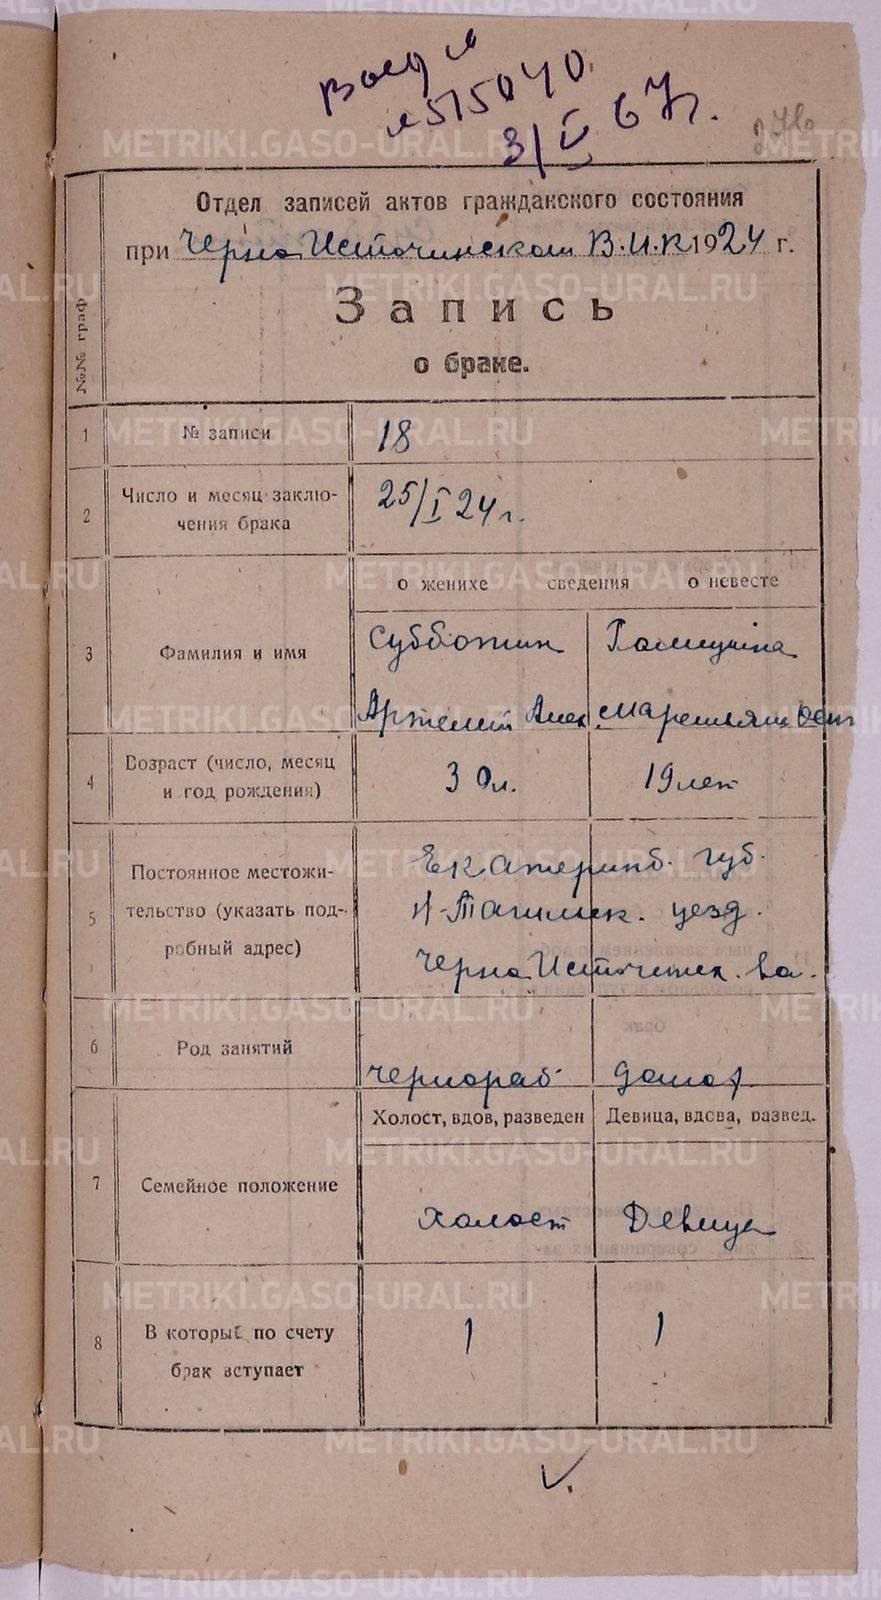 515040
3/V 67г.
Отдел записей актов гражданского состояния
при Черно Источинском В.И.К 1924 г.
Запись
о браке.
№№ граф
1 № записи 18
2 Число и месяц заклю-
чения брака 25/I 24 г.
о женихе сведения о невесте
3 Фамилия и имя Субботин
Артемий Алек
4 Возраст (число, месяц
и год рождения) 30 л. 19 лет
5 Постоянное местожи-
тельство (указать под-
робный адрес) Екатеринб. губ.
Н-Тагильск. уезд.
Черно Источинск. во.
6 Род занятий чернораб домох.
Холост, вдов, разведен Девица, вдова, развед.
7 Семейное положение холост Девица
8 В которы по счету
брак вступает 1 1
METRIKI.GASO-URAL.RU